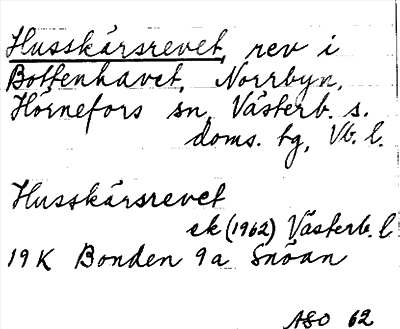 Husskärsrevet, rev i
Bottenhavet, Norrbyn,
Hörnefors sn, Västerb. s.
doms. tg, Vb. l.
Husskärsrevet
ek (1962) Västerb. l
19 K Bonden 9a Snöan
ASO 62